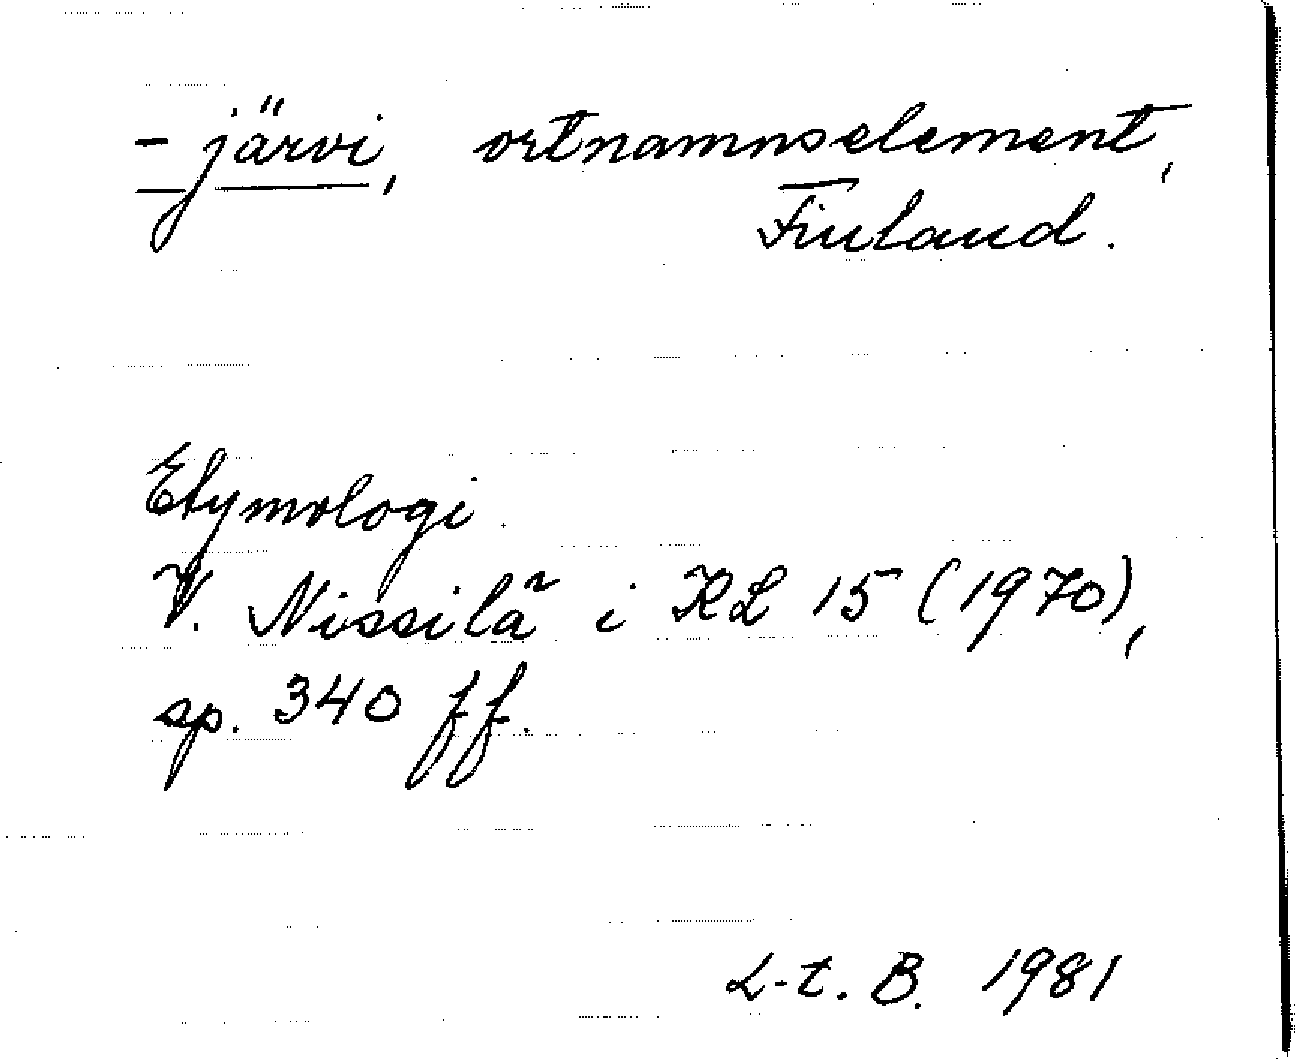 -järvi, ortnamnselement,
Finland.
Etymologi.
V. Nissilä i KL 15 (1970),
sp. 340 ff.
L-t. B. 1981